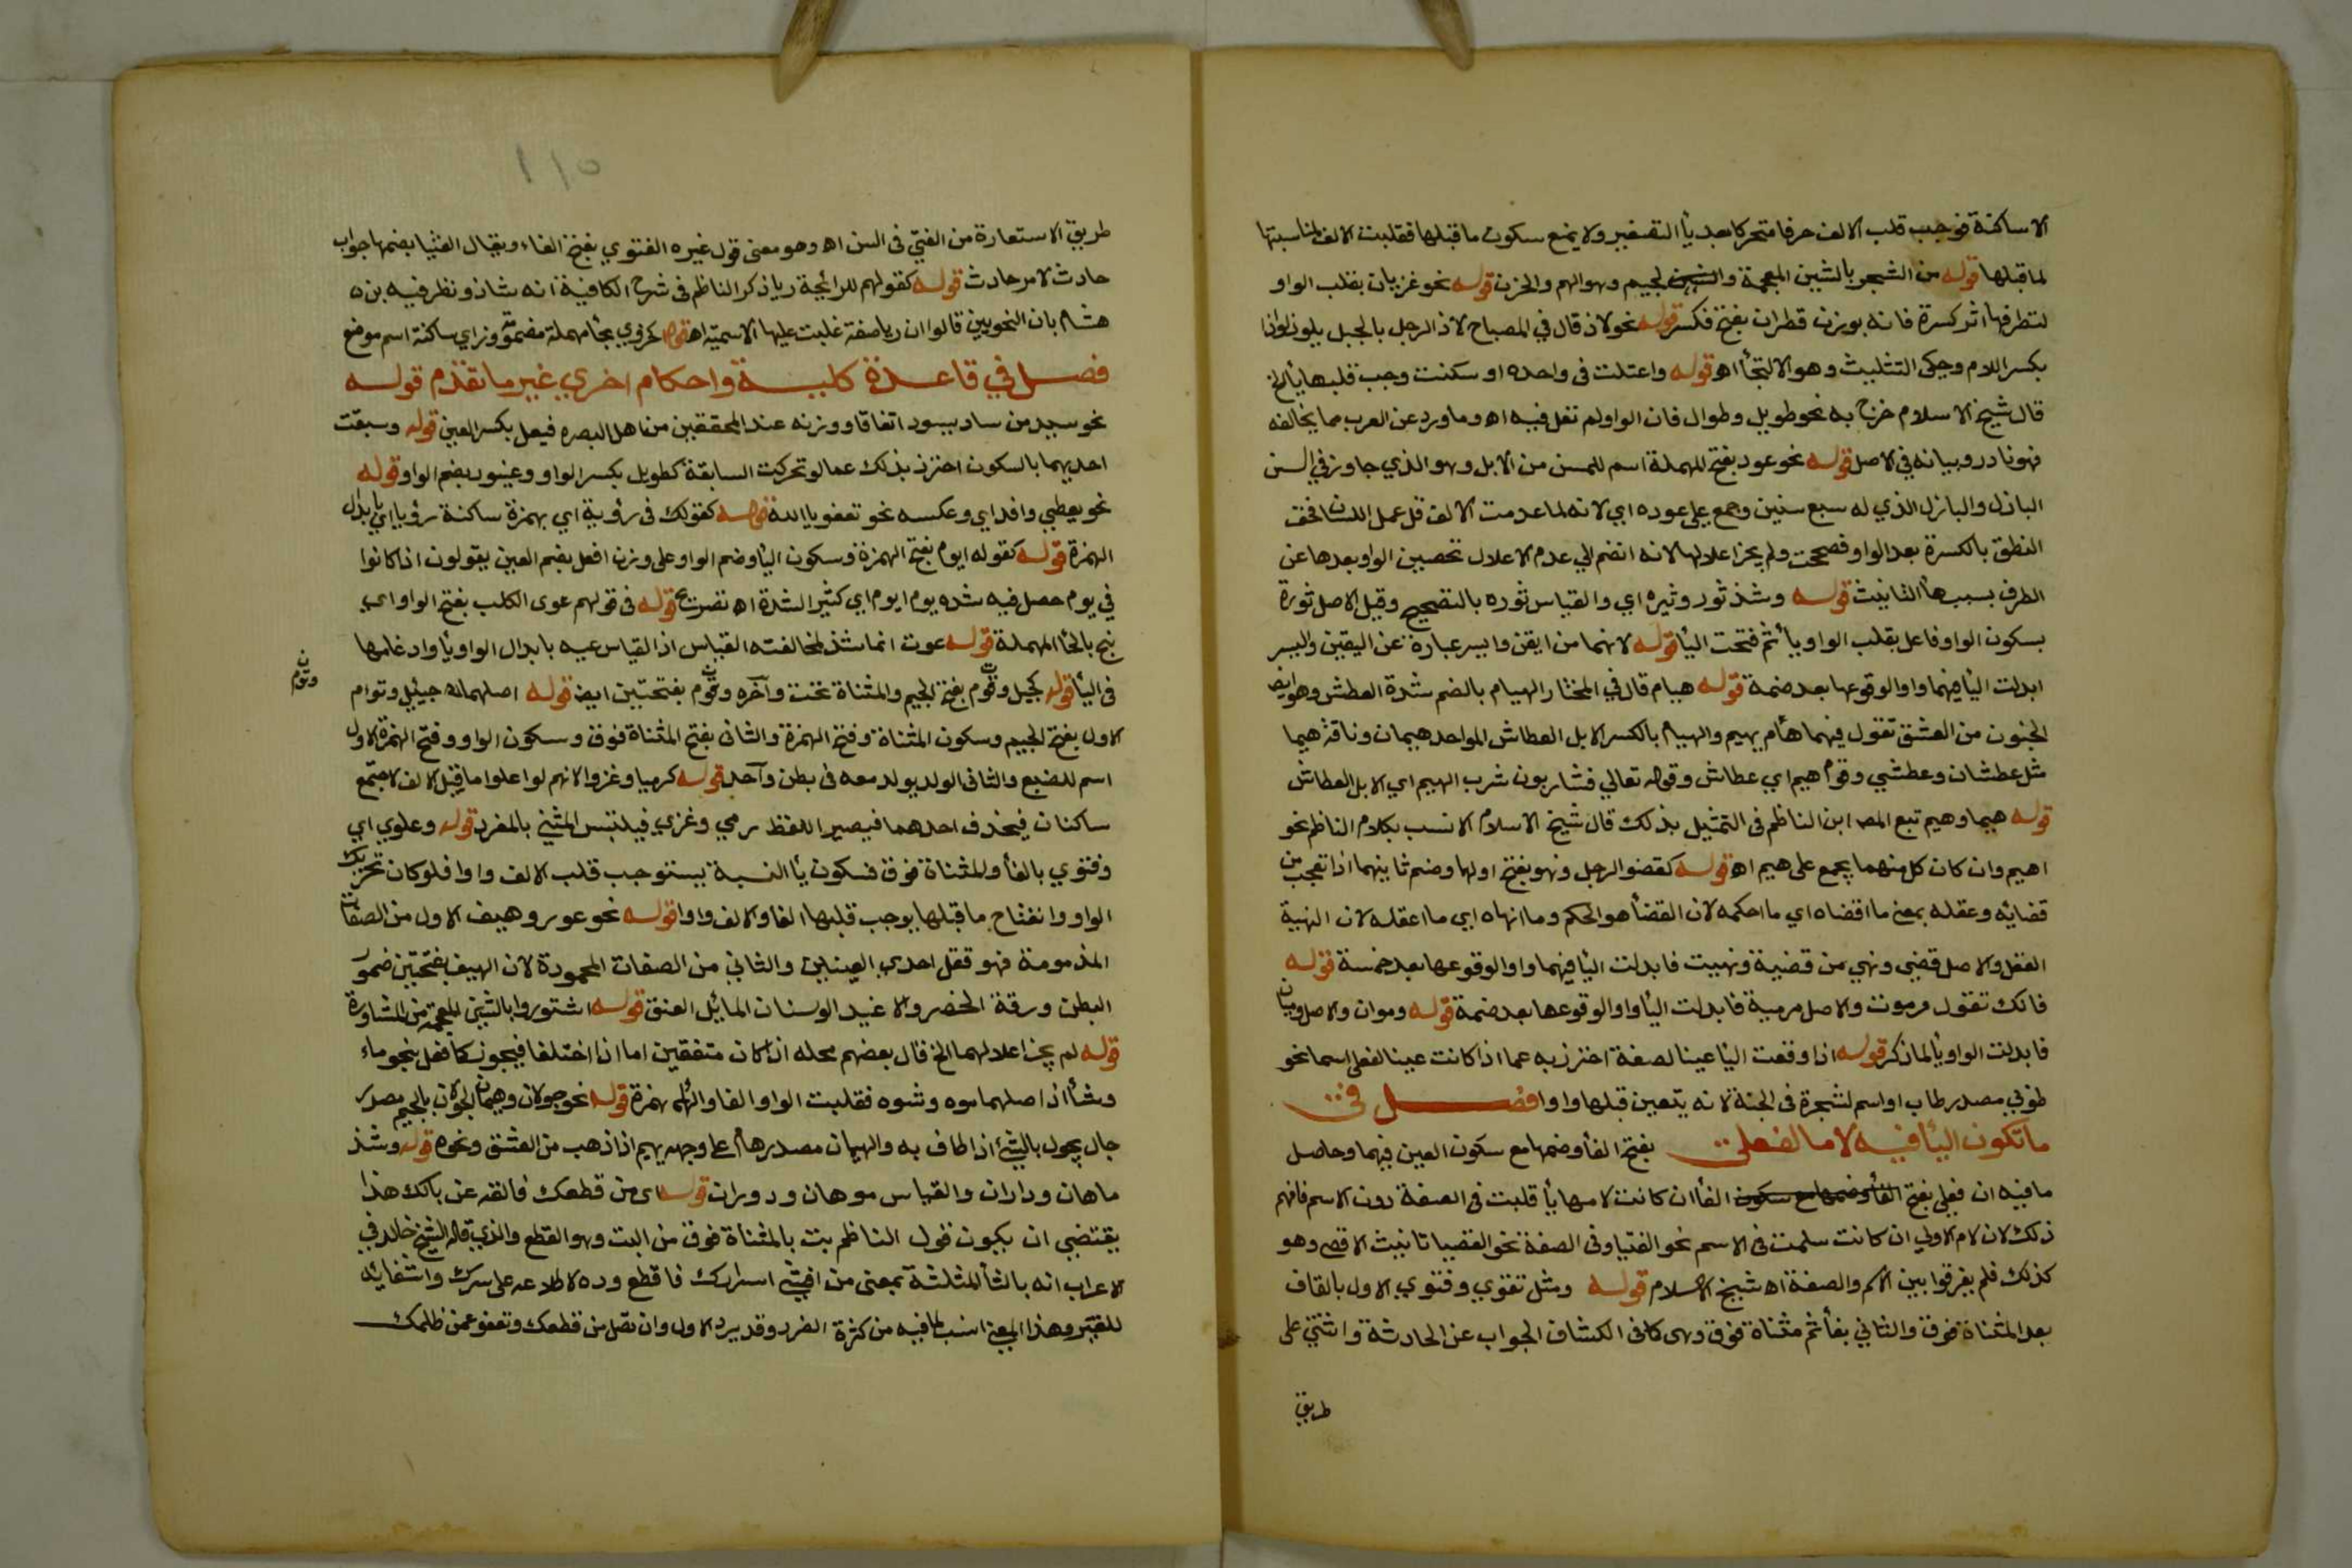 الا ساكنة فوجب قلب الالف حرفا متحركا بعد يأ التصغير ولا يمنع سكون ما قبلها فقلبت الالف لمناسبتها
لما قبلها قوله من الشجو بالشين المعجمة والجيم وهو الهم والحزن قوله نحو غزيان بقلب الواو
لتطرفها اثر كسرة فانه بوزن قطران بفتح فكسر قوله نحو لاذ قال في المصباح لاذ الرجل بالجبل يلوذ لواذا
بكسر اللام وحكى التثليث وهو الالتجأ اه قوله واعتلت فى واحده او سكنت وجب قلبها يأ الخ
قال شيخ الاسلام خرج به نحو طويل وطوال فان الواو لم تعل فيه اه وما ورد عن العرب مما يخالفه
فهو نادر وبيانه في الاصل قوله نحو عود بفتح المهملة اسم للمسن من الابل وهو الذي جاوز في السن
البازل والبازل الذي له سبع سنين وجمع على عوده اي لانه لما عدمت الالف قل عمل اللسان فخف
النطق بالكسرة بعد الواو فصححت ولم يجز اعلالها لانه انضم الي عدم الاعلال تحصين الواو بعدها عن
الطرف بسبب هأ التانيث قوله وشذ ثور وثيره اي والقياس ثوره بالتصحيح وقيل الاصل ثورة
بسكون الواو فاعل بقلب الواو يأ ثم فتحت اليأ قوله لانهما من ايقن وايسر عبارة عن اليقين واليسر
ابدلت اليأ فيهما واوا لوقوعها بعد ضمة قوله هيام قال في المختار الهيام بالضم شدة العطش وهو ايضا
الجنون من العشق تقول فيهما هأم يهيم والهيام بالكسر الابل العطاش الواحد هيمان وناقة هيما
مثل عطشان وعطشي وقوم هيم اي عطاش وقوله تعالي فشاربون شرب الهيم اي الابل العطاش
قوله هيما وهيم تبع المص ابن الناظم فى التمثيل بذلك قال شيخ الاسلام الانسب بكلام الناظم نحو
اهيم وان كان كل منهما يجمع على هيم اه قوله كقضو الرجل ونهو بفتح اولها وضم ثانيهما اذا تعجب من
قضائه وعقله بمعنى ما اقضاه اي ما احكمه لان القضأ هو الحكم وما انهاه اي ما اعقله لان النهية
العقل والاصل قضي ونهي من قضية ونهيت فابدلت اليأ فيهما واوا لوقوعها بعد ضمة قوله
فانك تقول مرموة والاصل مرمية فابدلت اليأ واوا لوقوعها بعد ضمة قوله وموان والاصل وميان
فابدلت الواو يأ لما ذكر قوله اذا وقعت اليأ عينا لصفة احترز به عما اذا كانت عينا لفعلى اسما نحو
طوبي مصدر طاب او اسم لشجرة فى الجنة لانه يتعين قبلها واوا فصل في
ما تكون اليأ فيه لاما لفعلى بفتح الفأ وضمها مع سكون العين فيهما وحاصل
ما فيه ان فعلى بفتح الفأ وضمها مع سكون الفأ ان كانت لامها يأ قلبت فى الصفة دون الاسم فافهم
ذلك لان لام الاولي ان كانت سلمت فى الاسم نحو الفتيا وفى الصفة نحو القصيا تانيث الاقصى وهو
كذلك فلم يفرقوا بين الاسم والصفة اه شيخ الاسلام قوله ومثل تقوي وفتوي الاول بالقاف
بعد المثناة فوق والثاني بفأ ثم مثناة فوق وهى كما فى الكشاف الجواب عن الحادثة وانثنى على
طريق
١١٥
طريق الاستعارة من الفتى فى السن اه وهو معنى قول غيره الفتوي بفتح الفاء ويقال الفتيا بضمها جواب
حادث لامر حادث قوله كقولهم للرائحة ريا ذكر الناظم فى شرح الكافية انه شاذ ونظر فيه بن
هشام بان النحويين قالوا ان ريا صفة غلبت عليها الاسمية اه قوله كحزوي بحأ مهملة مضمومة وزاي ساكنة اسم موضع
فصل في قاعدة كلية واحكام اخري غير ما تقدم قوله
نحو سيد من ساد يسود اتفاقا ووزنه عند المحققين من اهل البصره فيعل بكسر العين قوله وسبقت
احديهما بالسكون احترز بذلك عما لو تحركت السابقة كطويل بكسر الواو وغيور بضم الواو قوله
نحو يعطي وافد اي وعكسه نحو تعفو يا الله قوله كقولك فى رؤية اي بهمزة ساكنة رؤيا اي بابدال
الهمزة قوله كقوله ايوم بفتح الهمزة وسكون اليأ وضم الواو على وزن افعل بضم العين يقولون اذا كانوا
في يوم حصل فيه شده يوم ايوم اي كثير الشدة اه تصريح قوله فى قولهم عوى الكلب بفتح الواو اي
نبح بالحأ المهملة قوله عوت انما شذ لمخالفته القياس اذ القياس عيه بابدال الواو يأ وادغامها
فى اليأ قوله كجيل وتوم بفتح الجيم والمثناة تحت وآخره وتوم بفتحتين ايض قوله اصلهما جيئل وتوام
وتوم
الاول بفتح الجيم وسكون المثناة وفتح الهمزة والثانى بفتح المثناة فوق وسكون الواو وفتح الهمزة الاول
اسم للضبع والثانى الولد يولد معه فى بطن وآحد قوله كرميا وغزوا لانهم لو اعلوا ما قبل الالف لاجتمع
ساكنان فيحذف احدهما فيصير اللفظ رمي وغزي فيلتبس المثني بالمفرد قوله وعلوي اي
وفتوي بالفأ والمثناة فوق فسكون يأ النسبة يستوجب قلب الالف واوا فلو كان تحريك
الواو وانفتاح ما قبلها يوجب قلبها الفا والالف واوا قوله نحو عور وهيف الاول من الصفات
المذمومة فهو فقل احدي العينين والثاني من الصفات المحمودة لان الهيف بفتحتين ضمور
البطن ورقة الخصر والاغيد الوسنان المائل العنق قوله اشتوروا بالشين المعجمة من المشاورة
قوله لم يجز اعلالهما الخ قال بعضهم محله ان كان متفقين اما اذا اختلفا فيجوز كما فعل بنحو ماء
وشأ اذ اصلهما موه وشوه فقلبت الواو الفا والهأ همزة قوله نحو جولان وهيمان الجولان بالجيم مصدر
جال يجول بالشئ اذا طاف به والهيمان مصدر هأم على وجهه يهيم اذا ذهب من العشق ونحوه قوله وشذ
ماهان وداران والقياس موهان ودوران قوله اى من قطعك فالقه عن بالك هذا
يقتضي ان يكون قول الناظم بت بالمثناة فوق من البت وهو القطع والذي قاله الشيخ خالد في
الاعراب انه بالثأ المثلثة بمعنى من افشى اسرارك فاقطع وده لاطلاعه على سرك وانتفائه
للغير وهذا المعنى انسب لما فيه من كثرة الفرد وقد يرد الاول وان تصل من قطعك وتعفو عمن ظلمك